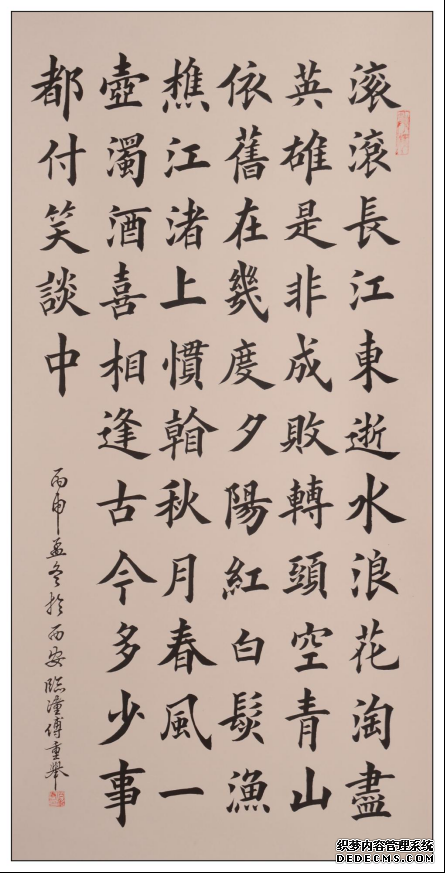 滚滾長江東逝水浪花淘盡
英雄是非成敗轉頭空青山
依舊在幾度夕陽紅白髮漁
樵江渚上慣看秋月春風一
壺濁酒喜相逢古今多少事
都付笑談中
丙申孟冬於西安臨潼傅重舉
织梦内容管理系统
DEDECMS.COM